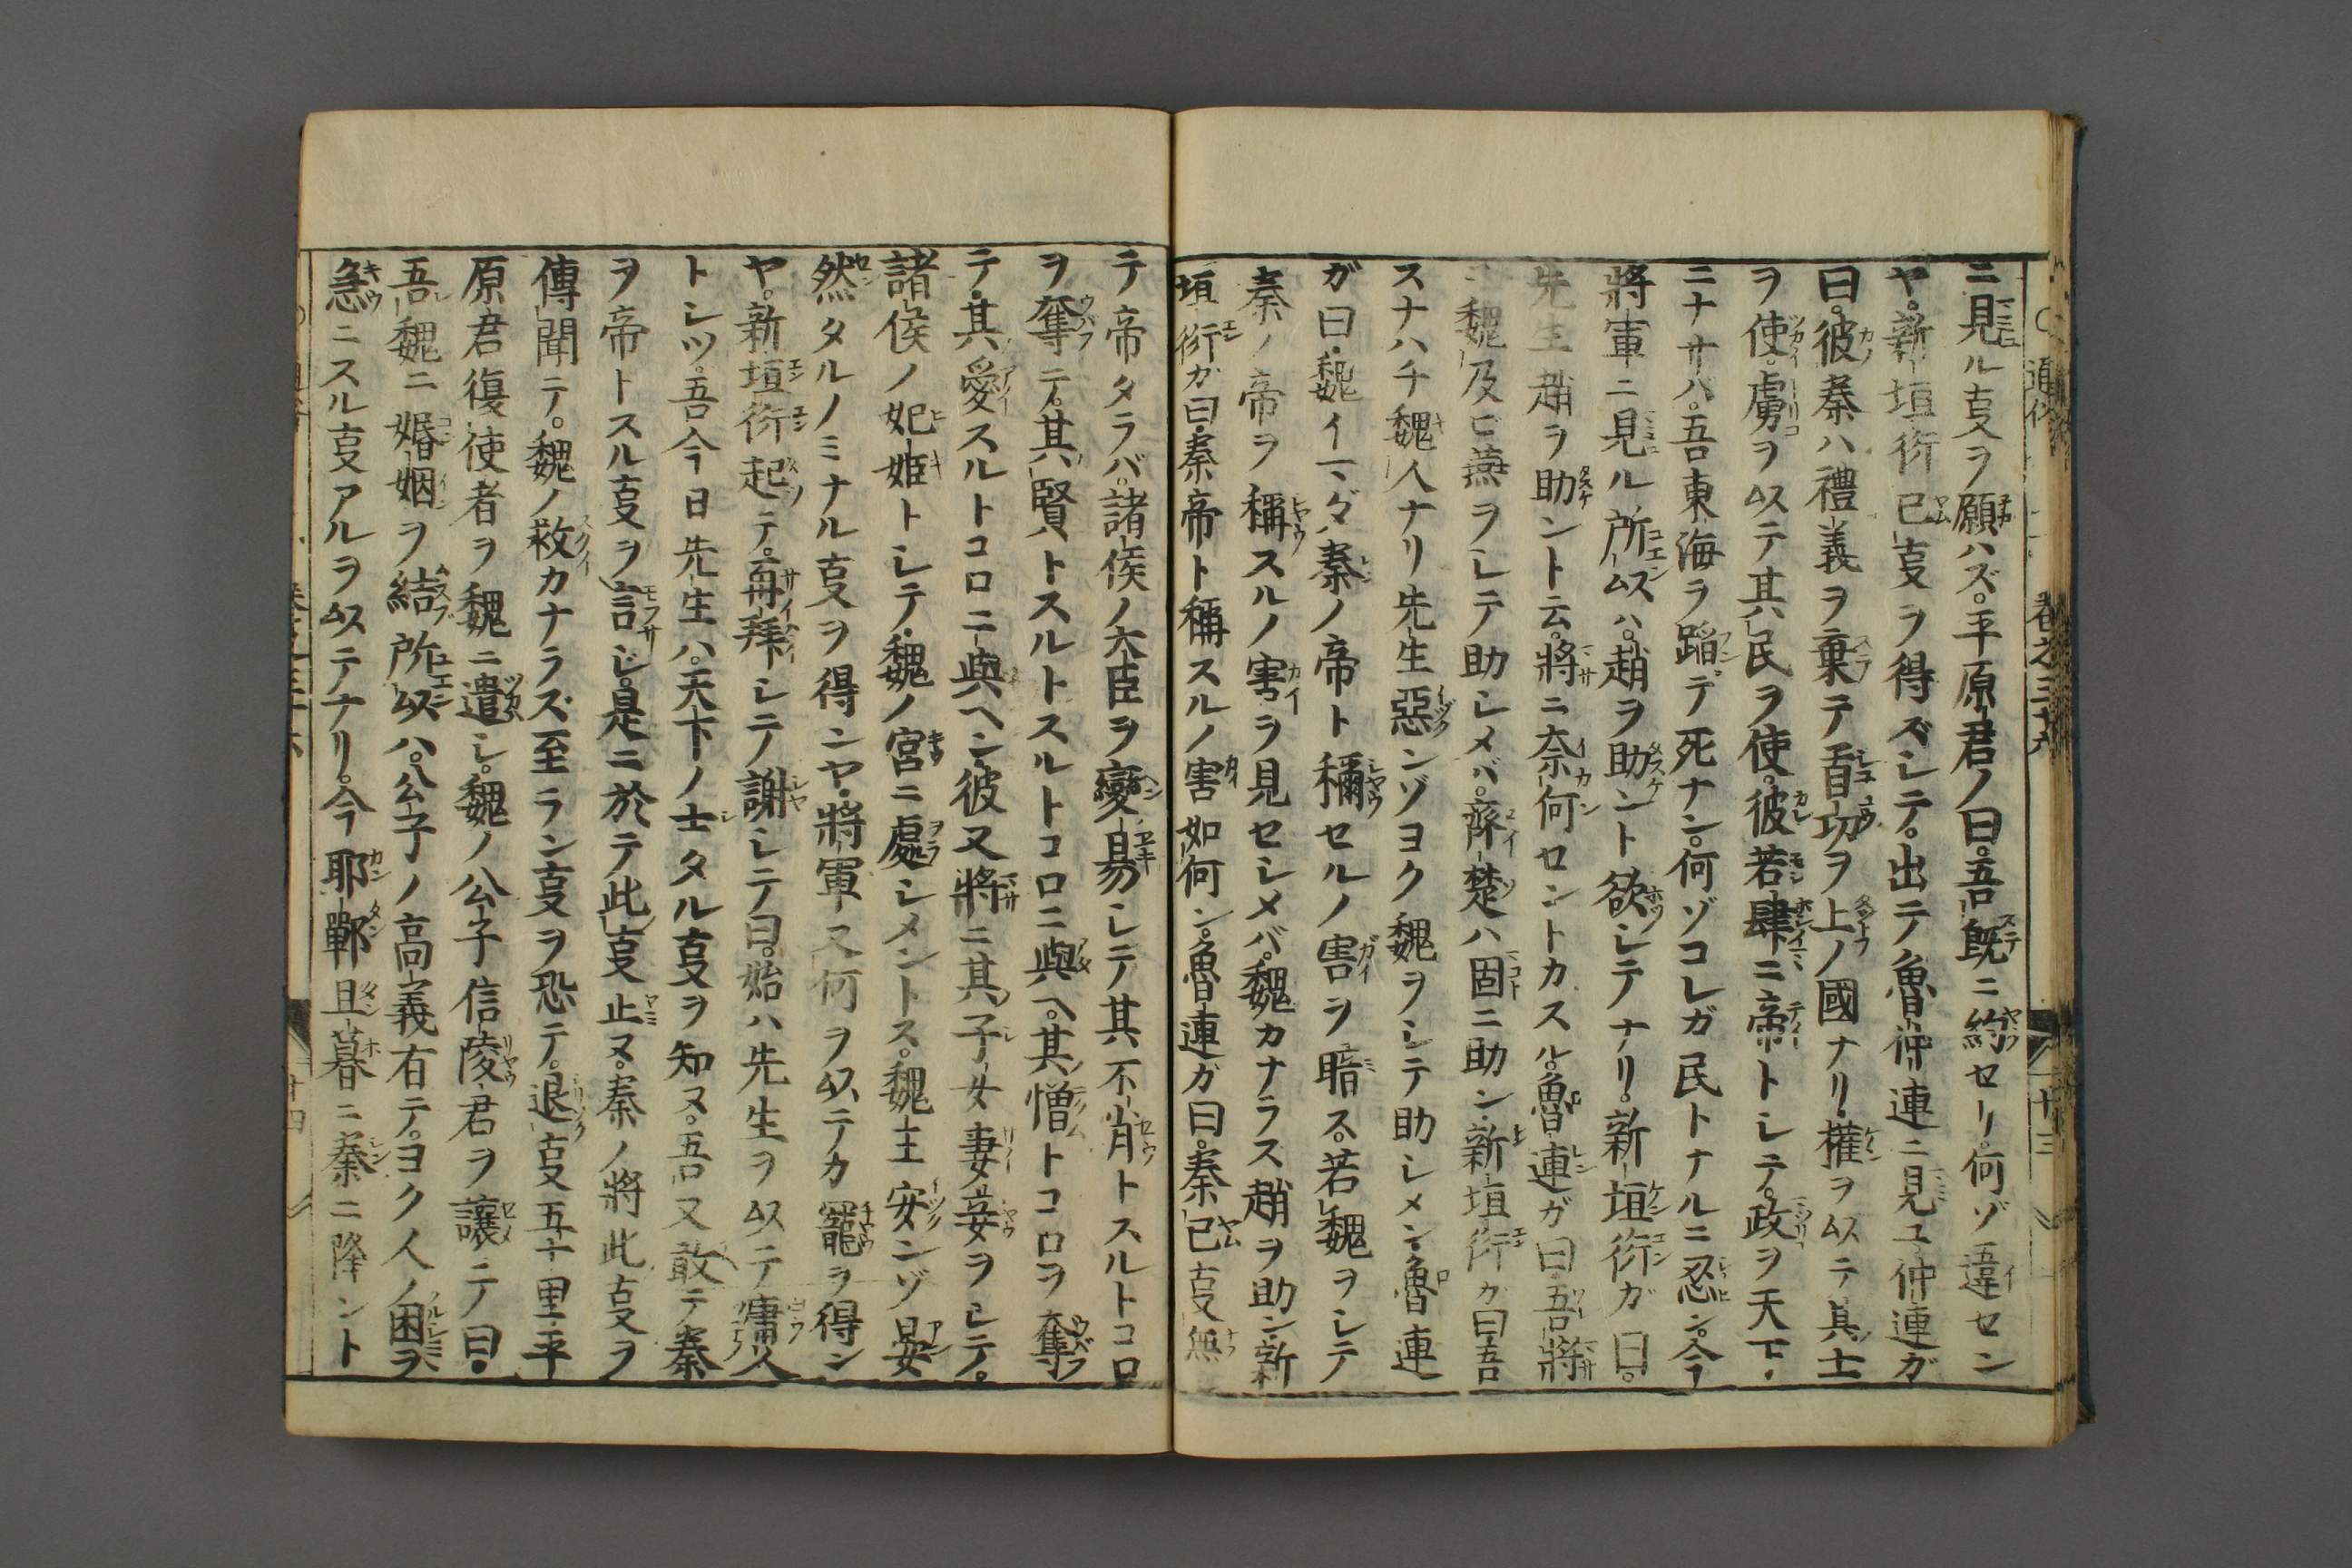 ニ見ル事ヲ願ハズ。平原君ノ曰。吾既ニ約セリ。何ゾ違セン
ヤ。新垣衍已事ヲ得ズシテ。出テ魯仲連ニ見ユ仲連ガ
曰。彼秦ハ禮義ヲ棄テ首功ヲ上ノ國ナリ。權ヲ以テ其士
ヲ使。虜ヲ以テ其民ヲ使。彼若肆ニ帝トシテ。政ヲ天下.
ニナサバ。吾東海ヲ蹈デ死ナン。何ゾコレガ民トナルニ忍ン。今
將軍ニ見ル所以ハ。趙ヲ助ント欲シテナリ。新垣衍ガ曰。
先生趙ヲ助ント云。將ニ奈何セントカスル。魯連ガ曰吾將
ニ魏及ビ燕ヲシテ助シメバ。齊楚ハ固ニ助ン.新垣衍ガ曰吾
スナハチ魏人ナリ先生惡ンゾヨク魏ヲシテ助シメン.魯連
ガ曰.魏イマダ秦ノ帝ト稱セルノ害ヲ睹ス。若魏ヲシテ
秦ノ帝ヲ稱スルノ害ヲ見セシメバ。魏カナラス趙ヲ助ン新
垣衍ガ曰.秦帝ト稱スルノ害如何ン。魯連ガ曰。秦已事無
テ帝タラバ。諸侯ノ大臣ヲ變易シテ其不肖トスルトコロ
ヲ奪テ。其賢トスルトスルトコロニ與ヘ。其憎トコロヲ奪
テ.其愛スルトコロニ與ヘン彼又將ニ其子女妻妾ヲシテ。
諸侯ノ妃姫トシテ.魏ノ宮ニ處シメントス。魏王安ンゾ晏
然タルノミナル事ヲ得ンヤ.將軍又何ヲ以テカ寵ヲ得ン
ヤ。新垣衍起テ。再拜シテ謝シテ曰。始ハ先生ヲ以テ庸人
トシツ。吾今日先生ハ。天下ノ士タル事ヲ知ヌ。吾又敢テ秦
ヲ帝トスル事ヲ言ジ。是ニ於テ此事止ヌ。秦ノ將此事ヲ
傳聞テ。魏ノ救カナラズ至ラン事ヲ恐テ。退事五十里.平
原君復使者ヲ魏ニ遣シ。魏ノ公子信陵君ヲ讓テ曰.
吾魏ニ婚姻ヲ結所以ハ。公子ノ高義有テ。ヨク人ノ困ヲ
急ニスル事アルヲ以テナリ。今耶鄲旦暮ニ秦ニ降ント